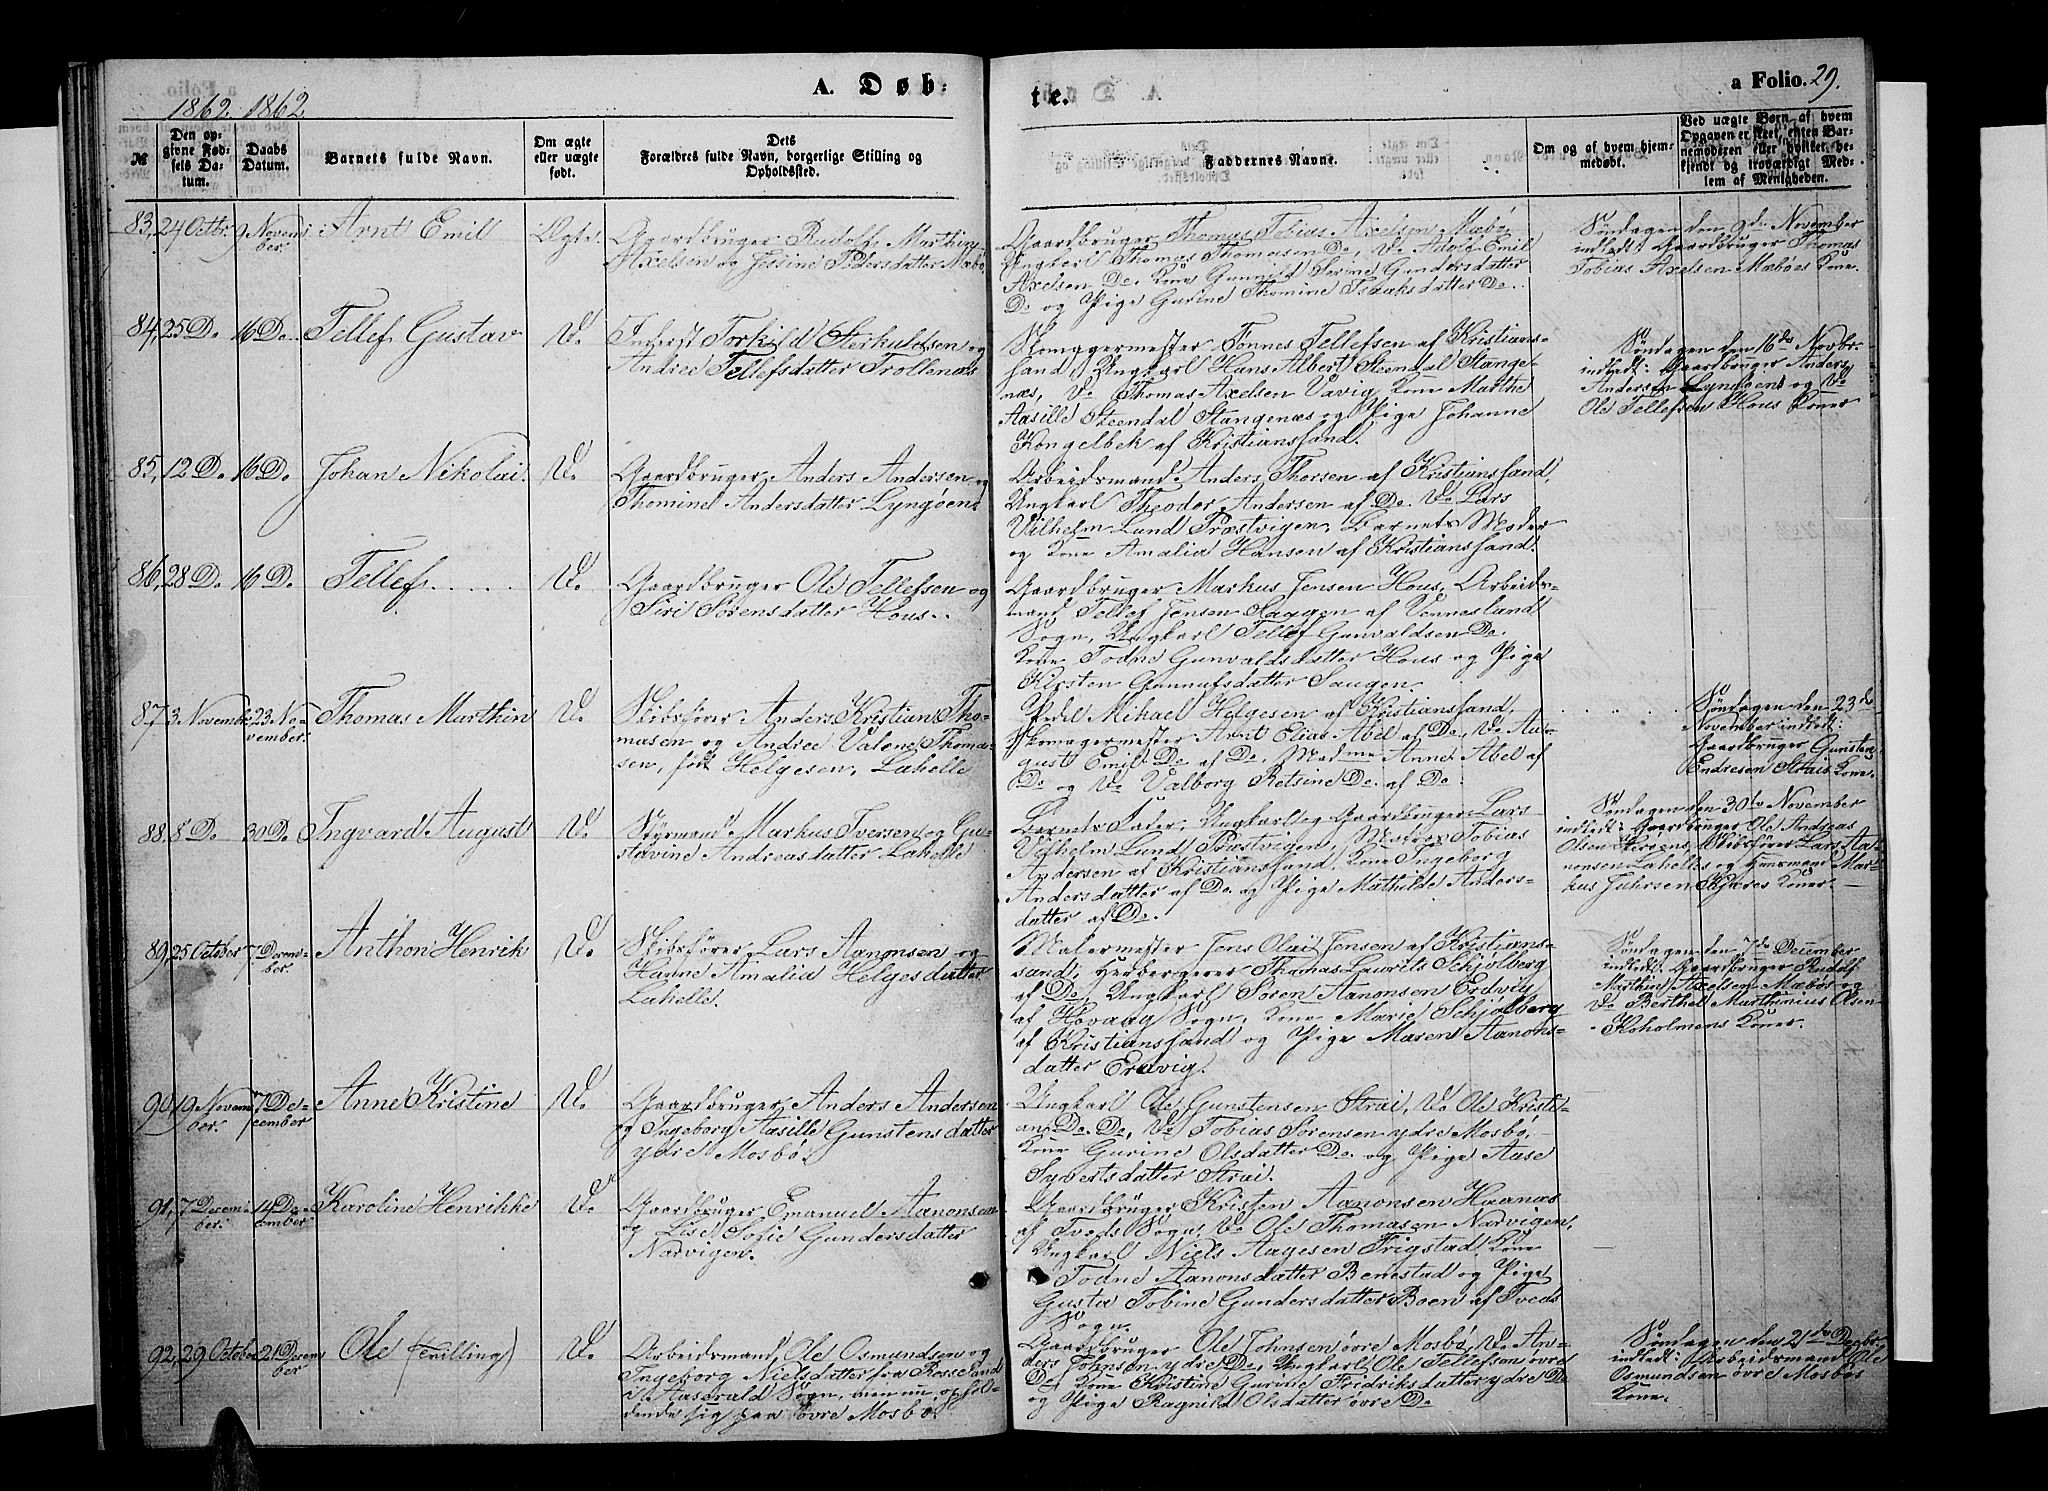 A. Døb:
te.
a Folio. 29.
1862. 1862
№
Den op-
givne Fød-
sels Da-
tum.
Daabs
Datum.
Barnets fulde Navn.
Om ægte
eller uægte
født.
Dets
Forældres fulde Navn, borgerlige Stilling og
Opholdssted.
Faddernes Navne.
Om og af hvem hjem-
medøbt.
Ved uægte Børn af hvem
Opgaven er skeet, enten Bar-
nemoderen eller hvilket be-
kjendt og troværdigt Med-
lem af Menigheden.
83, 24 Octbr. 9 Novem-
ber.
Arnt Emil
Ægte.
Gaardbruger Rudolf Marthin
Axelsen og Jessine Pedersdatter Mæbø
Gaardbruger Thomas Tobias Axelsen Mæbø,
Ungkarl Thomas Thomasen Do, Do Adolf Emil
Axelsen Do. Kone Gunnild Serine Gundersdatter
Do og Pige Gurine Thomine Isaaksdatter Do.
Søndagen den 9de November
indledt: Gaardbruger Thomas
Tobias Axelsen Mæbøes Kone.
84, 25 Do. 16 Do.
Tellef Gustav
Do.
Inderst Torkild Sterkuldsen og
Andrea Tellefsdatter Trollenæs
Skomagermester Tønnes Tellefsen af Kristians-
sand, Ungkarl Hans Albert Steendal Stange-
næs, Do Thomas Axelsen Vavig, Kone Marthe
Aasille Steendal Stangenæs og Pige Johanne
Kongelbek af Kristianssand.
Søndagen den 16de Novbr.
indledt: Gaardbruger Anders
Andersen Lyngøens og Do
Ole Tellefsen Hous Koner
85, 12 Do. 16 Do.
Johan Nikolai.
Do.
Gaardbruger Anders Andersen og
Thomine Andersdatter Lyngøen.
Arbeidsmand Anders Thorsen af Kristianssand,
Ungkarl Theodor Andersen af Do. Do Lars
Vilhelm Lund Præstvigen, Barnets Moder
og Kone Amalia Hansen af Kristianssand.
86, 28 Do. 16 Do.
Tellef
Do.
Gaardbruger Ole Tellefsen og
Siri Sørensdatter Hous.
Gaardbruger Markus Jensen Hous, Arbeids-
mand Tellef Jensen Haugen af Vennesland
Sogn, Ungkarl Tellef Gunvaldsen Do.
Kone Todne Gunvaldsdatter Hous og Pige
Kirsten Gunnufsdatter Haugen.
87, 3 November 23 No-
vember.
Thomas Marthin
Do.
Skibsfører Anders Kristian Tho-
masen og Andrea Valene Thoma-
sen, født Helgesen, Lahelle
Pedel Mikael Helgesen af Kristianssand,
Skomagermester Arnt Elias Abel af Do, Do Au-
gust Emil Do af Do, Madme Anne Abel af
Do og Do Valborg Retsine Do. af Do.
Søndagen den 23de
November indledt:
Gaardbruger Gunsten
Endresen Strais Kone.
88. 8 Do 30 Do
Ingvard August
Do.
Styrmand Markus Iversen og Gu-
stavine Andreasdatter Lahelle
Barnets Fader, Ungkarl og Gaardbruger Lars
Vilhelm Lund Præstvigen, Tobias
Andersen af Kristianssand, Kone Ingeborg
Andersdatter af Do. og Pige Mathilde Anders-
datter af Do.
Søndagen den 30te November
indledt: Gaardbruger Ole Andreas
Olsen Skibsfører Lars Aa-
nonsen Lahelles og Huusmand Mar-
kus Juhrsen Kjæres Koner.
89, 25 October 7 Decem-
ber.
Anthon Henrik
Do.
Skibsfører Lars Aanonsen og
Hanne Amalia Helgesdatter
Lahelle.
Malermester Jens Olai Jensen af Kristians-
sand, Herbergerer Thomas Laurits Schjølberg
af Do, Ungkarl Søren Aanonsen Erdvig
af Høvaag Sogn, Kone Marie Schjølberg
af Kristianssand og Pige Maren Aanons-
datter Erdvig.
Søndagen den 7de December
indledt: Gaardbruger Rudolf
Marthin Axelsen Mæbøs og
Do Berthel Marthinius Olsen
Koholmens Koner.
90, 19 Novem-
ber. 7 De-
cember
Anne Kristine
Do.
Gaardbruger Anders Andersen
og Ingeborg Aasille Gunstensdatter
ydre Mosbø.
Ungkarl Ole Gunstensen Strai, Do Ole Kristi-
an Do. Do, Do Tobias Sørensen ydre Mosbø,
Kone Gurine Olsdatter Do. og Pige Aase
Syvertsdatter Strai.
91, 7 Decem-
ber. 14 De-
cember
Karoline Henrikke
Do.
Gaardbruger Emanuel Aanonsen
og Lise Sofie Gundersdatter
Narvigen.
Gaardbruger Kristen Aanonsen Haanæs
af Tveds Sogn, Do Ole Thomasen Narvigen,
Ungkarl Niels Aagesen Frigstad, Kone
Todne Aanonsdatter Benestad og Pige
Gusta Tobine Gundersdatter Boen af Tveds
Sogn.
92, 29 October 21 Decem-
ber
Ole (Tvilling)
Do.
Arbeidsmand Ole Osmundsen og
Ingeborg Nielsdatter fra Rosseland
i Aaserald Sogn, men nu ophol-
dende sig paa Øvre Mosbø.
Gaardbruger Ole Johnsen øvre Mosbø, Do An-
ders Johnsen ydre Do, Ungkarl Ole Tellefsen øvre
Do, Kone Kristine Gurine Fridriksdatter ydre Do
og Pige Ragnild Olsdatter øvre Do
Søndagen den 21de Decbr
indledt: Arbeidsmand Ole
Osmundsen øvre Mosbøs
Kone.